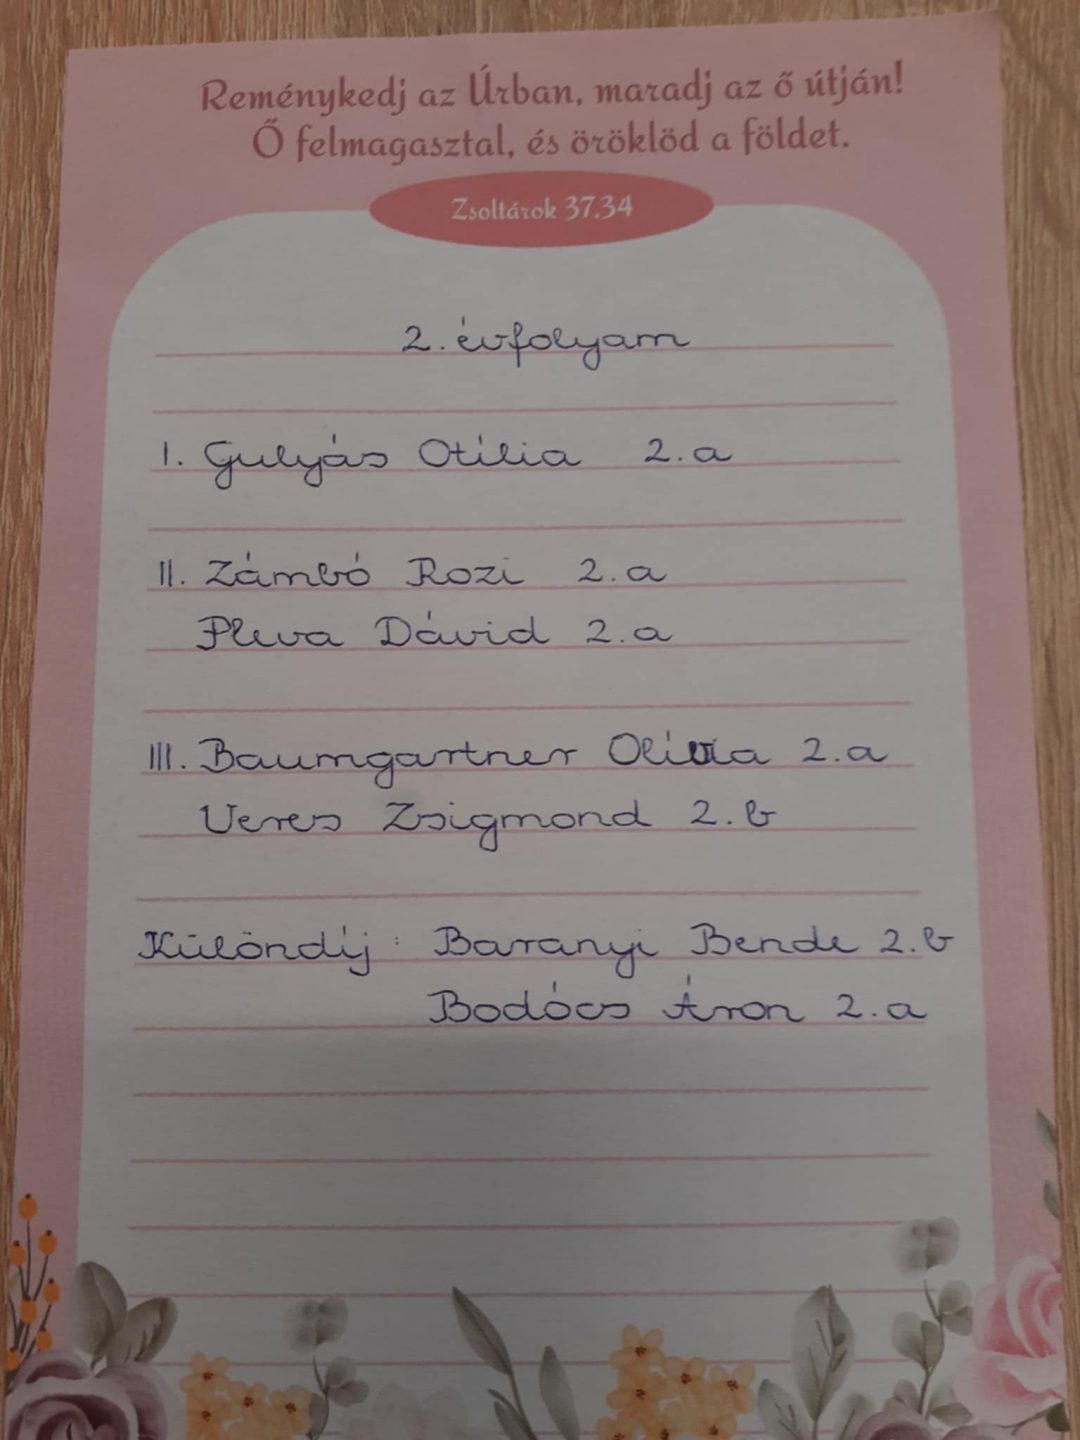 Reménykedj az Úrban, maradj az ő útján!
Ő felmagasztal, és öröklöd a földet.
Zsoltárok 37.34
2. évfolyam
I. Gulyás Otília 2.a
II. Zámbó Rozi 2.a
Pleva Dávid 2.a
III. Baumgartner Olívia 2.a
Veres Zsigmond 2.b
Különdíj: Baranyi Bende 2.b
Bodócs Áron 2.a